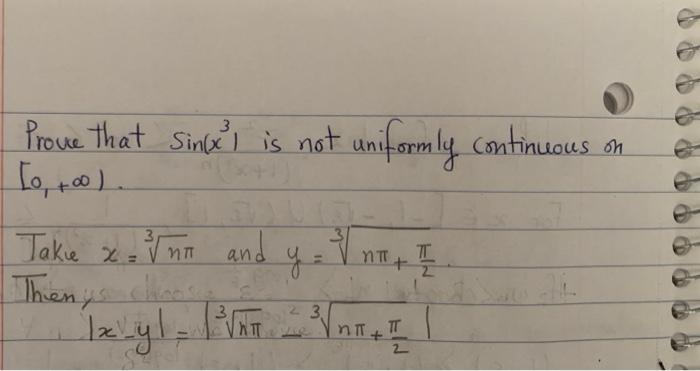 Prove that sin(x³) is not uniformly continuous on
[0, +∞).
Take x = ∛nπ and y = ∛nπ + π/2.
Then,
|x - y| = |∛nπ - ∛nπ + π/2|